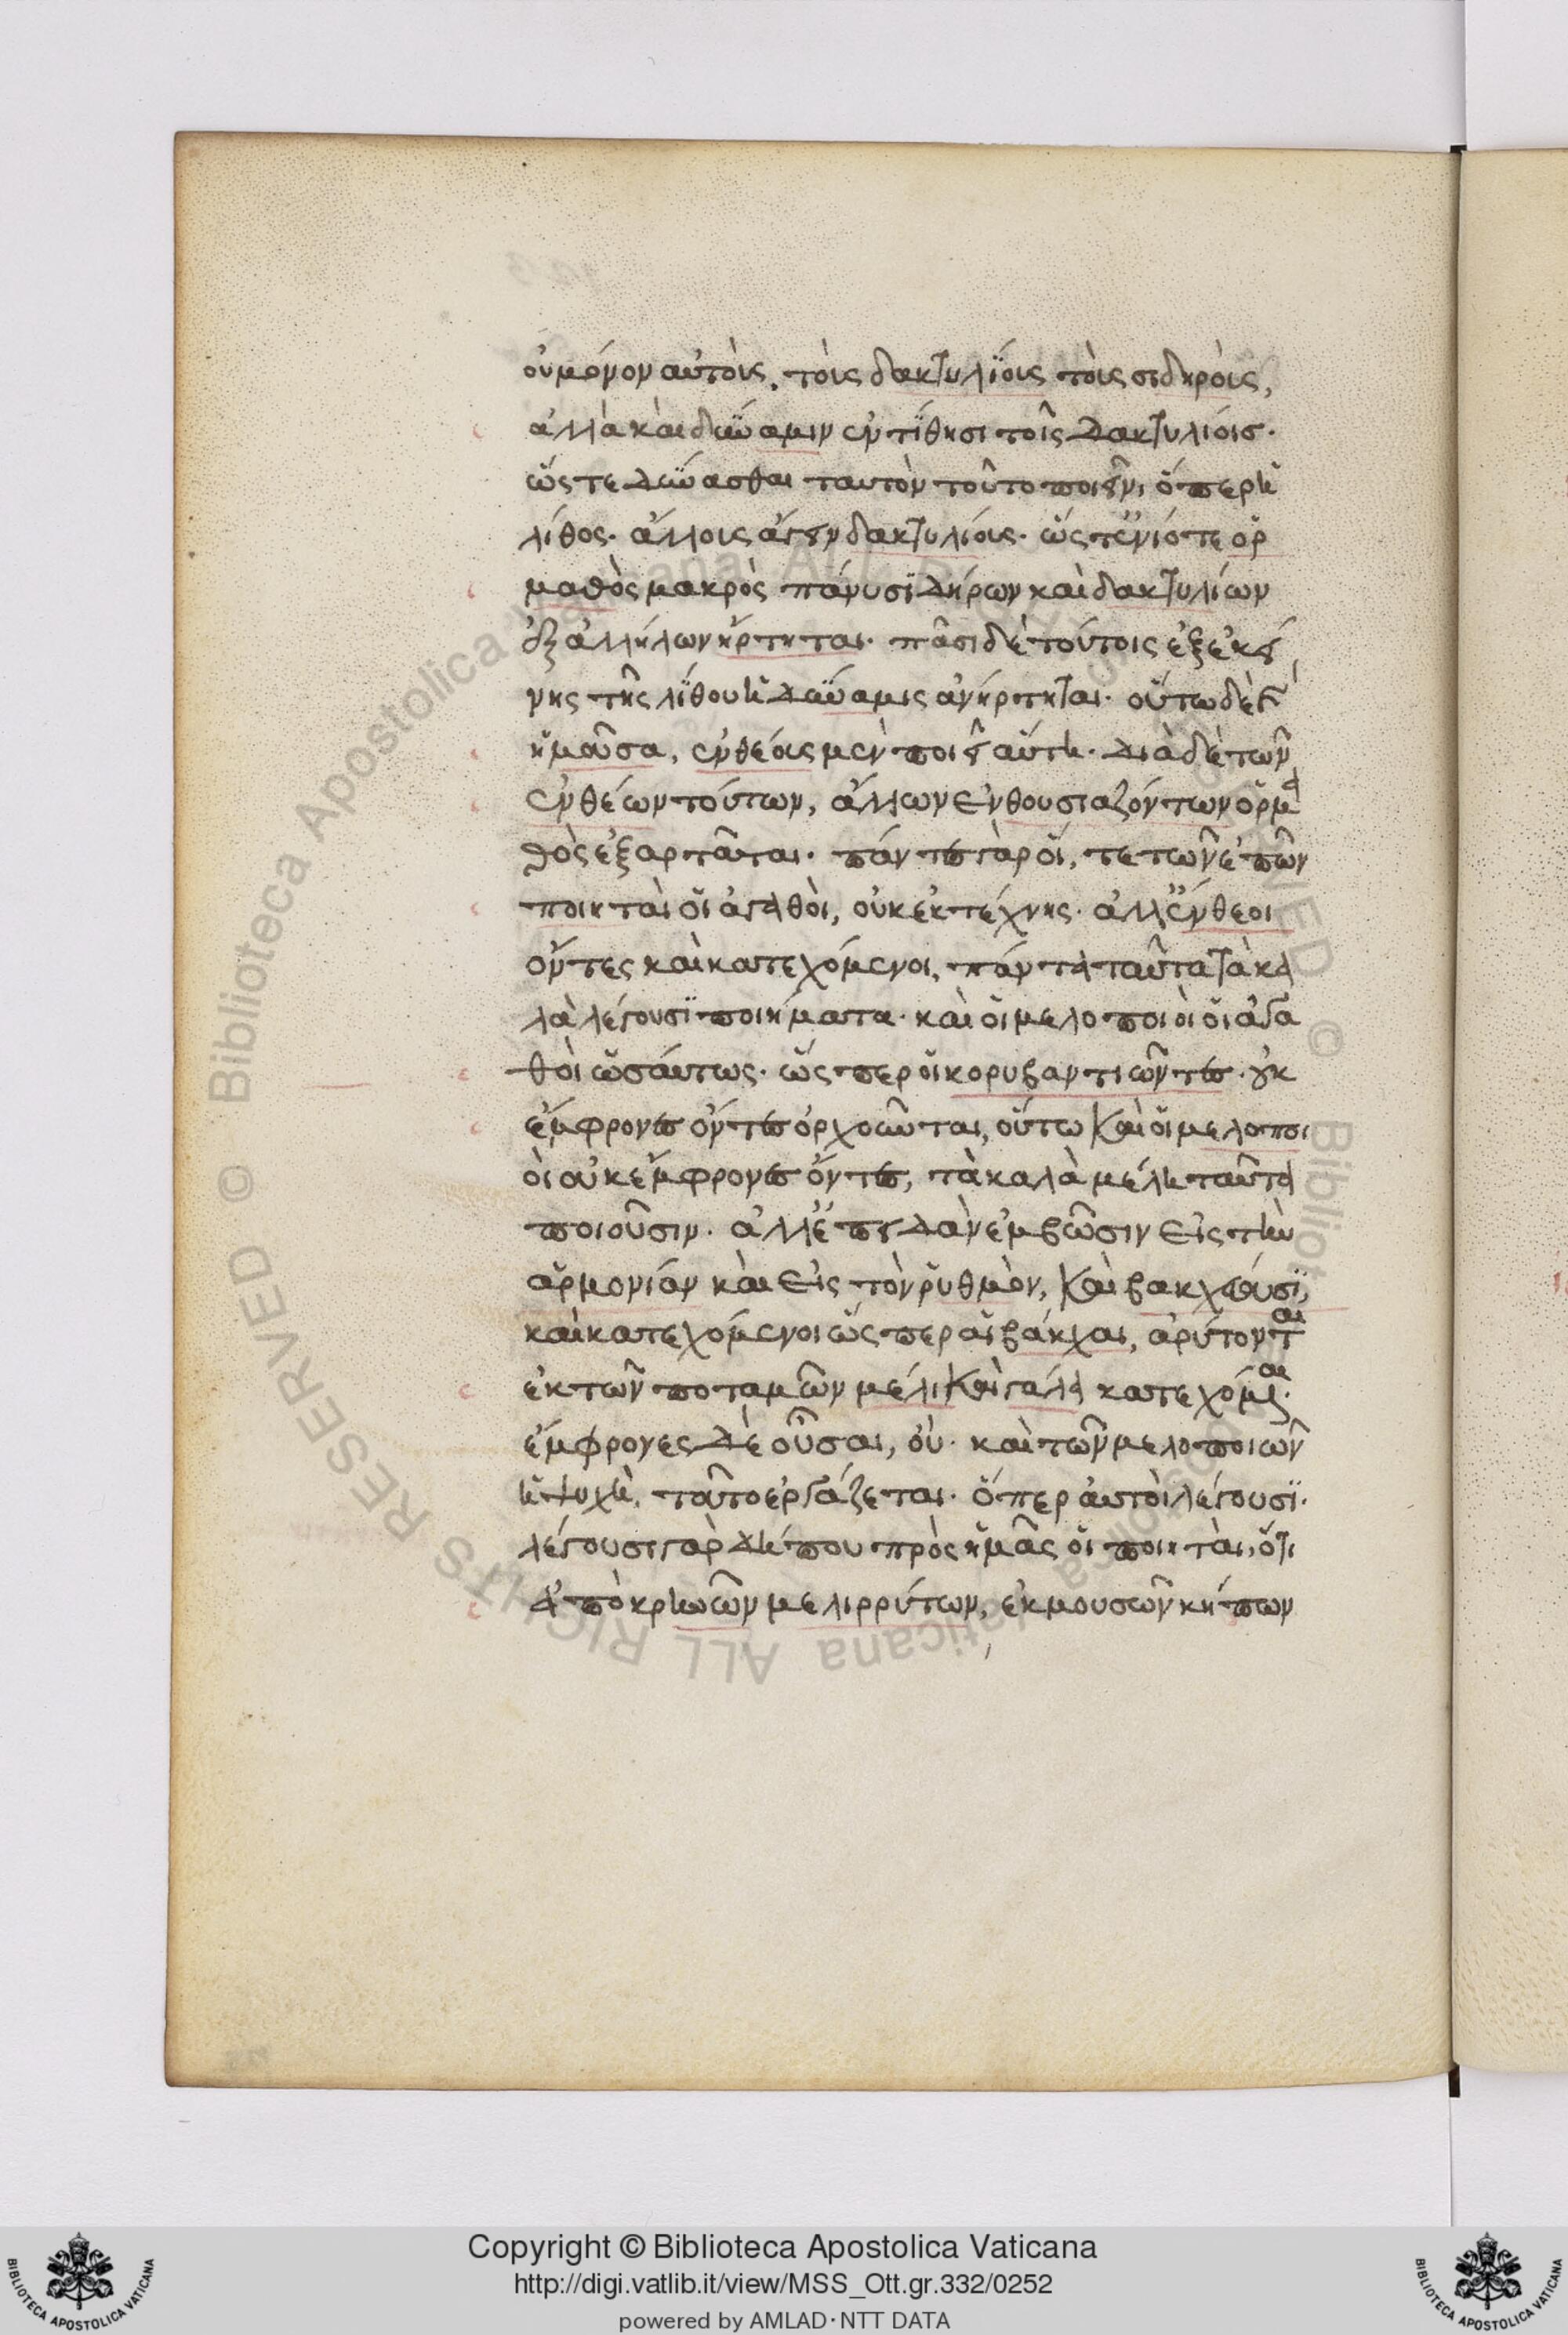 οὐ μόνον αὐτοὺς, τοὺς δακτυλίους τοὺς σιδηροὺς,
ἀλλὰ καὶ δύναμιν ἐντίθησι τοῖς δακτυλίοις·
ὥστε δύνασθαι ταυτὸν τοῦτο ποιεῖν, ὅπερ ἡ
λίθος· ἄλλους ἄγειν δακτυλίους· ὥστ' ἐνίοτε ὁρ
μαθὸς μακρὸς πάνυ σιδήρων καὶ δακτυλίων
ἐξ ἀλλήλων ἤρτηται· πᾶσι δὲ τούτοις ἐξ ἐκεί
νης τῆς λίθου ἡ δύναμις ἀνήρτηται· οὕτω δὲ καὶ
ἡ μοῦσα, ἐνθέους μὲν ποιεῖ αὐτή· διὰ δὲ τῶν
ἐνθέων τούτων, ἄλλων ἐνθουσιαζόντων ὁρμα
θὸς ἐξαρτᾶται· πάντες γὰρ οἵ, τε τῶν ἐπῶν
ποιηταὶ οἱ ἀγαθοὶ, οὐκ ἐκ τέχνης· ἀλλ' ἔνθεοι
ὄντες καὶ κατεχόμενοι, πάντα ταῦτα τὰ κα
λὰ λέγουσι ποιήματα· καὶ οἱ μελοποιοὶ οἱ ἀγα
θοὶ ὡσαύτως· ὥσπερ οἱ κορυβαντιῶντες· οὐκ
ἔμφρονες ὄντες ὀρχοῦνται, οὕτω καὶ οἱ μελοποι
οὶ οὐκ ἔμφρονες ὄντες, τὰ καλὰ μέλη ταῦτα
ποιοῦσιν· ἀλλ' ἐπειδὰν ἐμβῶσιν εἰς τὴν
ἁρμονίαν καὶ εἰς τὸν ῥυθμὸν, καὶ βακχεύουσι,
καὶ κατεχόμενοι ὥσπερ αἱ βάκχαι, ἀρύτονται
ἐκ τῶν ποταμῶν μέλι καὶ γάλα κατεχόμεναι·
ἔμφρονες δὲ οὖσαι, οὔ· καὶ τῶν μελοποιῶν
ἡ ψυχὴ, τοῦτο ἐργάζεται· ὅπερ αὐτοὶ λέγουσι·
λέγουσι γὰρ δήπου πρὸς ἡμᾶς οἱ ποιηταὶ, ὅτι
ἀπὸ κρηνῶν μελιρρύτων, ἐκ μουσῶν κήπων
Copyright © Biblioteca Apostolica Vaticana
http://digi.vatlib.it/view/MSS_Ott.gr.332/0252
powered by AMLAD·NTT DATA
BIBLIOTECA APOSTOLICA VATICANA
BIBLIOTECA APOSTOLICA VATICANA